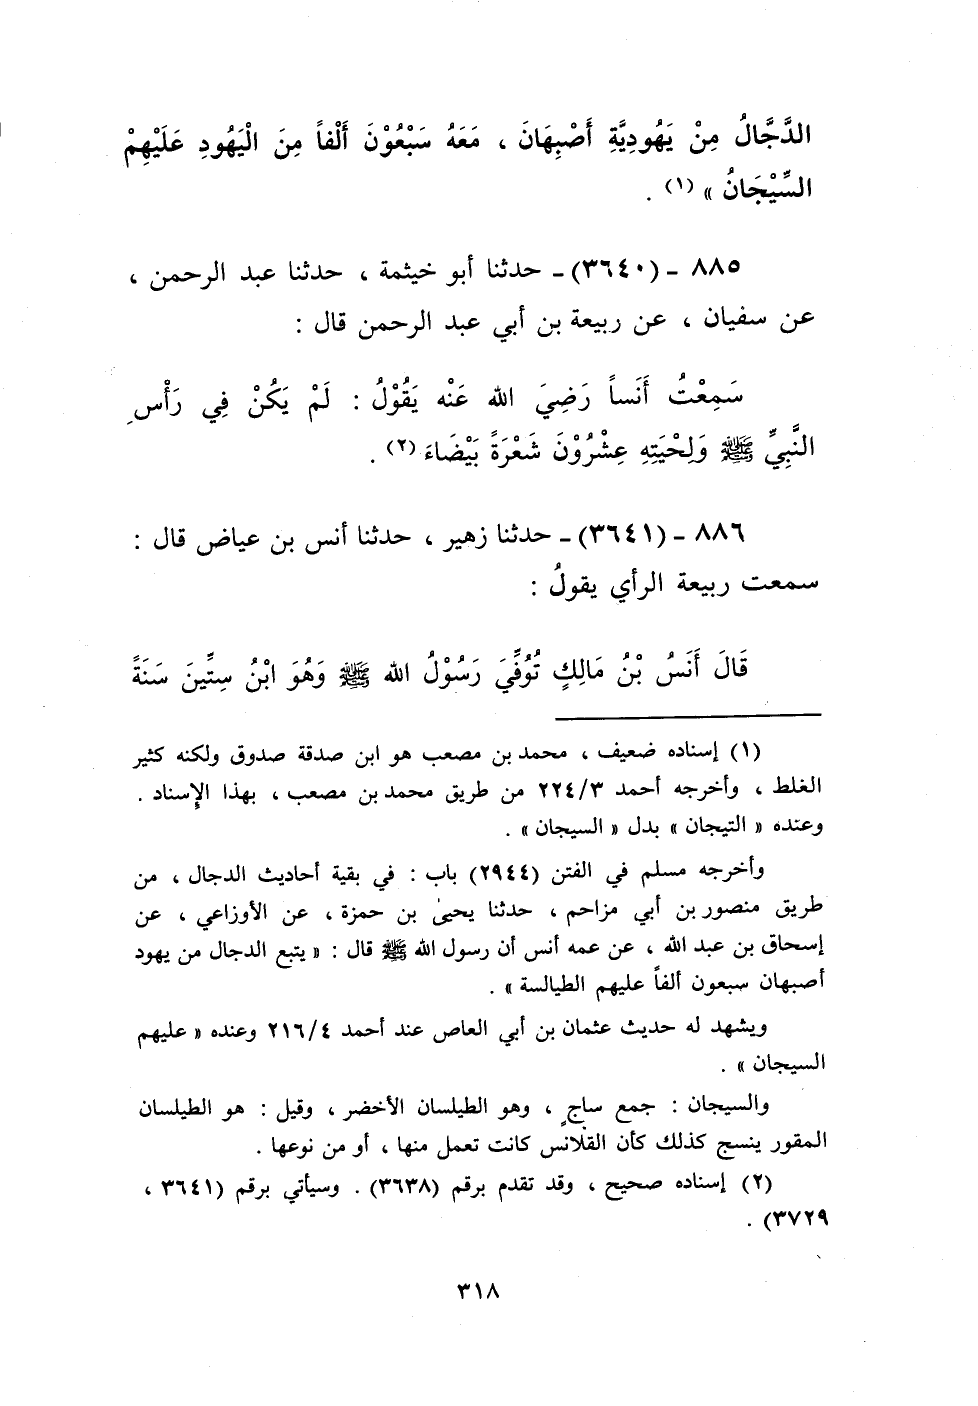 الدَّجَّالُ مِنْ يَهُودِيَّةِ أَصْبِهَانَ ، مَعَهُ سَبْعُوْنَ أَلْفاً مِنَ الْيَهُودِ عَلَيْهِمْ
السِّيْجَانُ » (١) .
٨٨٥ - (٣٦٤٠) - حدثنا أبو خيثمة ، حدثنا عبد الرحمن ،
عن سفيان ، عن ربيعة بن أبي عبد الرحمن قال :
سَمِعْتُ أَنَساً رَضِيَ الله عَنْه يَقُوْلُ : لَمْ يَكُنْ فِي رَأْسِ
النَّبِيِّ ﷺ وَلِحْيَتِهِ عِشْرُوْنَ شَعْرَةً بَيْضَاءَ (٢) .
٨٨٦ - (٣٦٤١) - حدثنا زهير ، حدثنا أنس بن عياض قال :
سمعت ربيعة الرأي يقولُ :
قَالَ أَنَسُ بْنُ مَالِكٍ تُوُفِّيَ رَسُوْلُ الله ﷺ وَهُوَ ابْنُ سِتِّينَ سَنَةً
(١) إسناده ضعيف ، محمد بن مصعب هو ابن صدقة صدوق ولكنه كثير
الغلط ، وأخرجه أحمد ٢٢٤/٣ من طريق محمد بن مصعب ، بهذا الإسناد .
وعنده « التيجان » بدل « السيجان » .
وأخرجه مسلم في الفتن (٢٩٤٤) باب : في بقية أحاديث الدجال ، من
طريق منصور بن أبي مزاحم ، حدثنا يحيىٰ بن حمزة ، عن الأوزاعي ، عن
إسحاق بن عبد الله ، عن عمه أنس أن رسول الله ﷺ قال : « يتبع الدجال من يهود
أصبهان سبعون ألفاً عليهم الطيالسة » .
ويشهد له حديث عثمان بن أبي العاص عند أحمد ٢١٦/٤ وعنده « عليهم
السيجان » .
والسيجان : جمع ساجٍ ، وهو الطيلسان الأخضر ، وقيل : هو الطيلسان
المقور ينسج كذلك كأن القلانس كانت تعمل منها ، أو من نوعها .
(٢) إسناده صحيح ، وقد تقدم برقم (٣٦٣٨) . وسيأتي برقم (٣٦٤١ ،
٣٧٢٩) .
٣١٨